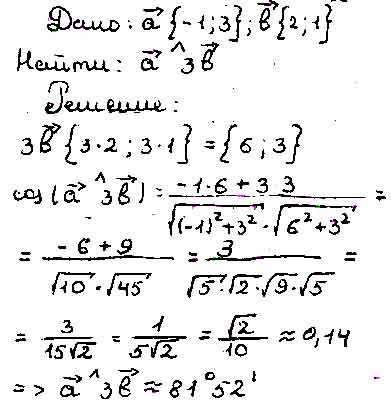 Дано: a⃗ {-1; 3}; b⃗ {2; 1}
Найти: a⃗ ^ 3b⃗
Решение:
3b⃗ {3·2; 3·1} = {6; 3}
cos(a⃗ ^ 3b⃗) = (-1·6 + 3 3)/(√((-1)² + 3²) · √(6² + 3²)) =
= (-6 + 9)/(√10 · √45) = 3/(√5 · √2 · √9 · √5) =
= 3/(15√2) = 1/(5√2) = √2/10 ≈ 0,14
=> a⃗ ^ 3b⃗ ≈ 81°52'